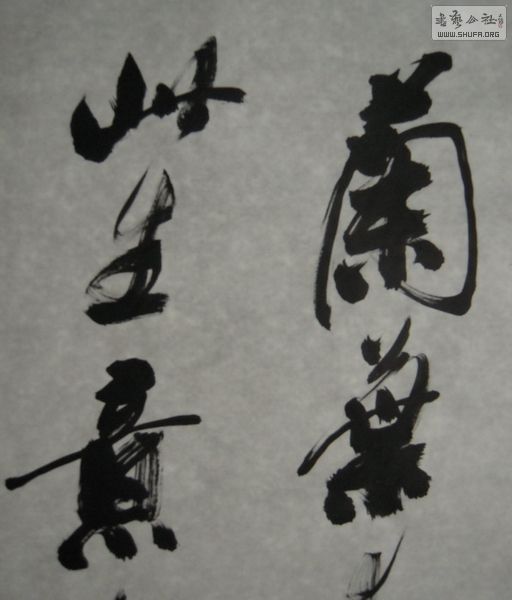 蘭葉
此生意
書藝公社
WWW.SHUFA.ORG